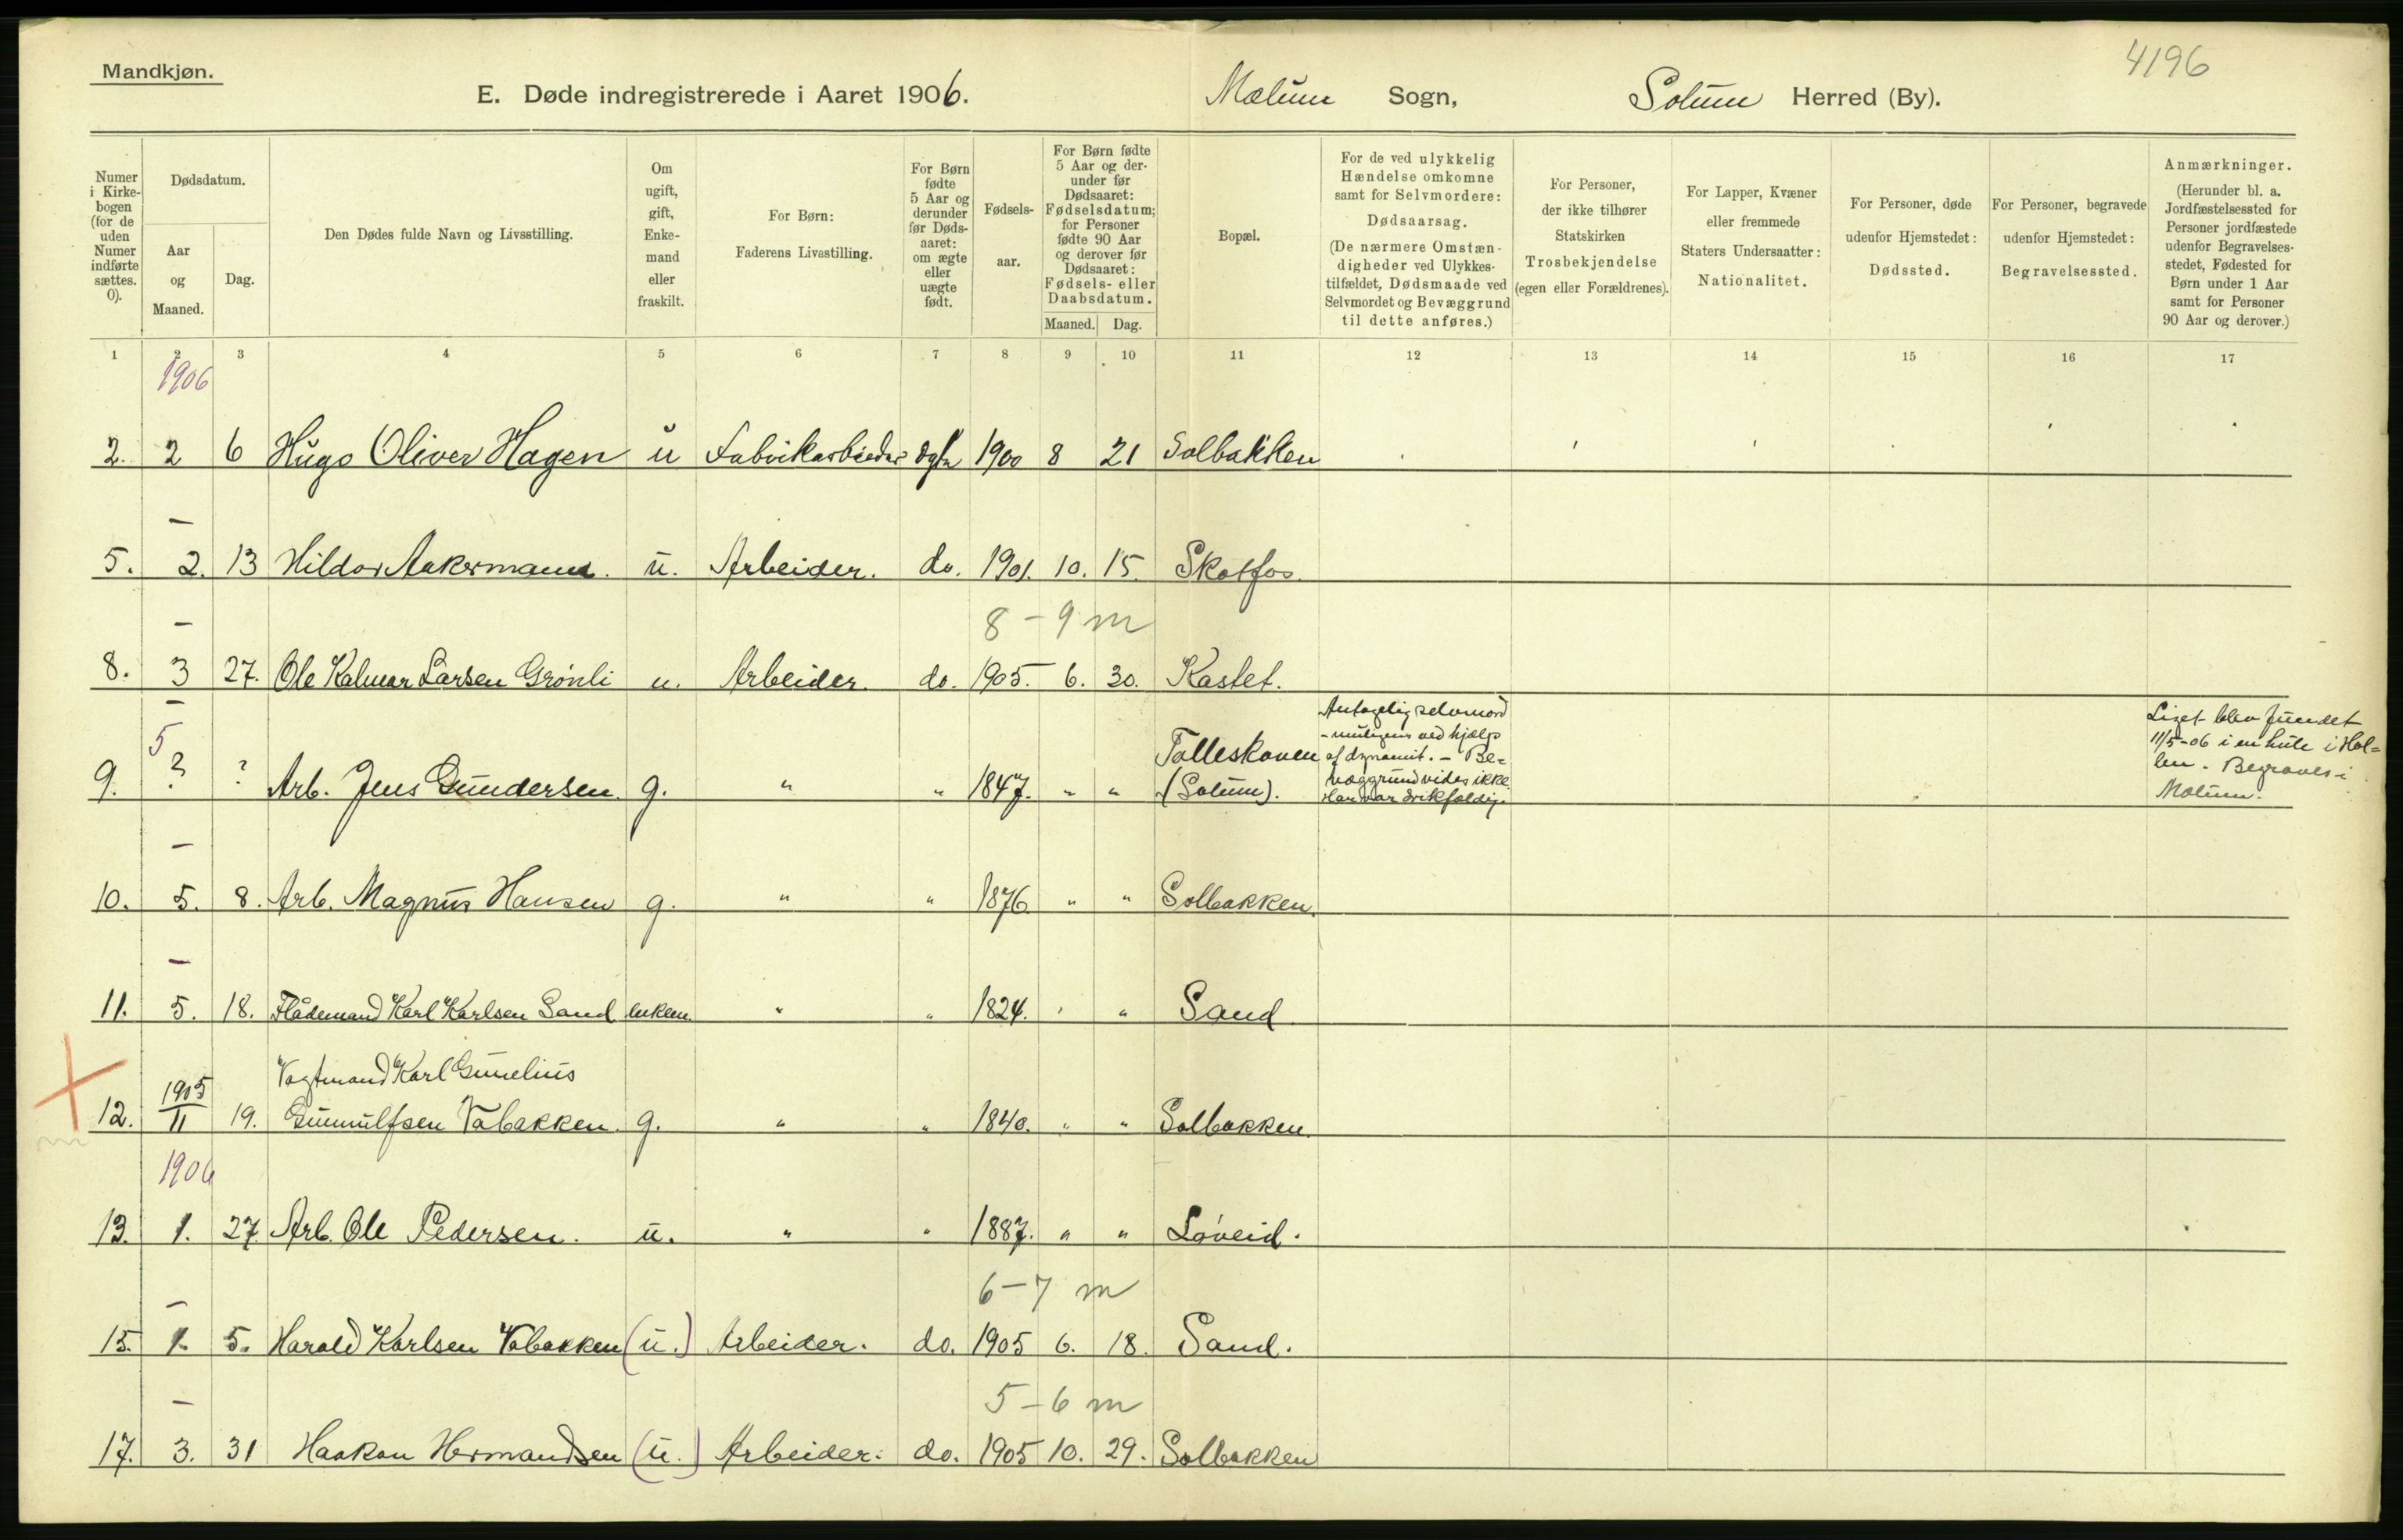 4196
Mandkjøn.
E. Døde indregistrerede i Aaret 1906. Mælum Sogn, Solum Herred (By).
Numer i Kirke- bogen (for de uden Numer indførte sættes. 0).
Dødsdatum.
Aar og Maaned.
Dag.
Den Dødes fulde Navn og Livsstilling.
Om ugift, gift, Enke- mand eller fraskilt.
For Børn:
Faderens Livsstilling.
For Børn fødte 5 Aar og derunder før Døds- aaret: om ægte eller uægte født.
Fødsels- aar.
For Børn fødte 5 Aar og der- under før Dødsaaret: Fødselsdatum; for Personer fødte 90 Aar og derover før Dødsaaret: Fødsels- eller Daabsdatum.
Maaned. Dag.
Bopæl.
For de ved ulykkelig Hændelse omkomne samt for Selvmordere:
Dødsaarsag.
(De nærmere Omstæn- digheder ved Ulykkes- tilfældet, Dødsmaade ved Selvmordet og Bevæggrund til dette anføres.)
For Personer, der ikke tilhører Statskirken
Trosbekjendelse
(egen eller Forældrenes).
For Lapper, Kvæner eller fremmede Staters Undersaatter:
Nationalitet.
For Personer, døde udenfor Hjemstedet:
Dødssted.
For Personer, begravede udenfor Hjemstedet:
Begravelsessted.
Anmærkninger.
(Herunder bl. a. Jordfæstelsessted for Personer jordfæstede udenfor Begravelses- stedet, Fødested for Børn under 1 Aar samt for Personer 90 Aar og derover.)
1 2 3 4 5 6 7 8 9 10 11 12 13 14 15 16 17
1906
2. 2 6 Hugo Oliver Hagen u Fabrikarbeider 1900 8 21 Solbakken
–
5. 2. 13 Hildor Aakermann. u. Arbeider. do. 1901. 10. 15. Skotfos.
– 8 – 9 m
8. 3 27. Ole Kalmar Larsen Grönli u. Arbeider. do. 1905. 6. 30. Kastet.
– 5
9. ? ? Arb. Jens Gundersen. g. " " 1847. " " Tolleskoven (Solum).
Antagelig selvmord
- muligens ved hjælp
af dynamit. – Be=
væggrund vides ikke
Han var drikfældig.
Liget blev fundet
11/5-06 i en hule i Hol=
len. Begraves i
Mælum.
–
10. 5. 8. Arb. Magnus Hansen g. " " 1876 " " Solbakken.
–
11. 5. 18. Flådemand Karl Karlsen Sand enkem. " " 1824. " " Sand
Vagtmand Karl Gunelius
12. 1905 11 19. Gunnulfsen Vabakken. g. " " 1840. " " Solbakken.
m
1906
13. 1. 27. Arb. Ole Pedersen. u. " " 1887. " " Löveid.
– 6 – 7 m
15. 1. 5. Harald Karlsen Vabakken (u.) Arbeider. do. 1905 6. 18. Sand.
– 5 – 6 m
17. 3. 31 Haakon Hermandsen (u.) Arbeider. do. 1905 10. 29. Solbakken